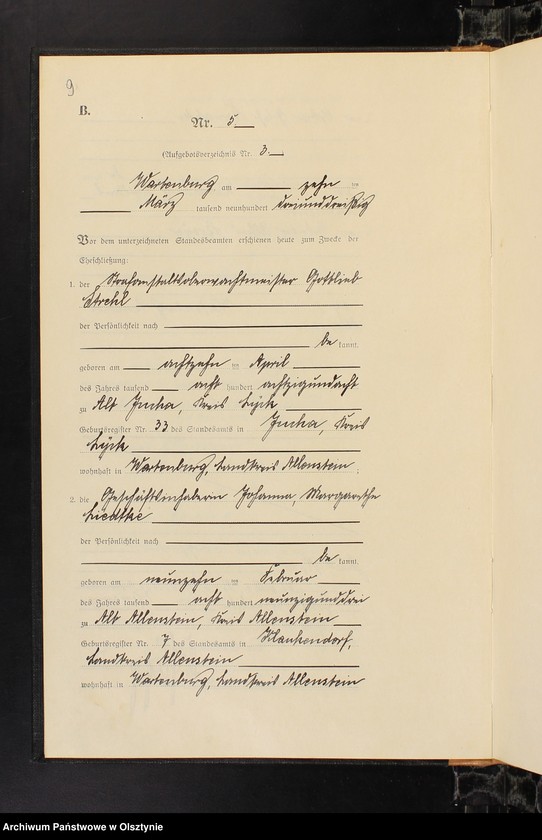 9
B.
Nr. 5
Aufgebotsverzeichnis Nr. 3.
Wartenburg am zehn ten
März tausend neunhundert dreiunddreißig
Vor dem unterzeichneten Standesbeamten erschienen heute zum Zwecke der
Eheschließung:
1. der Strafanstaltsoberwachtmeister Gottlieb
Strehl
der Persönlichkeit nach
be kannt,
geboren am achtzehn ten April
des Jahres tausend acht hundert achtzigundacht
zu Alt Jucha, Kreis Lyck
Geburtsregister Nr. 33 des Standesamts in Jucha, Kreis
Lyck
wohnhaft in Wartenburg, Landkreis Allenstein;
2. die Geschäftsinhaberin Johanna, Margarethe
Liedtke
der Persönlichkeit nach
be kannt,
geboren am neunzehn ten Februar
des Jahres tausend acht hundert neunzigunddrei
zu Alt Allenstein, Kreis Allenstein
Geburtsregister Nr. 7 des Standesamts in Klaukendorf,
Landkreis Allenstein
wohnhaft in Wartenburg, Landkreis Allenstein
Archiwum Państwowe w Olsztynie